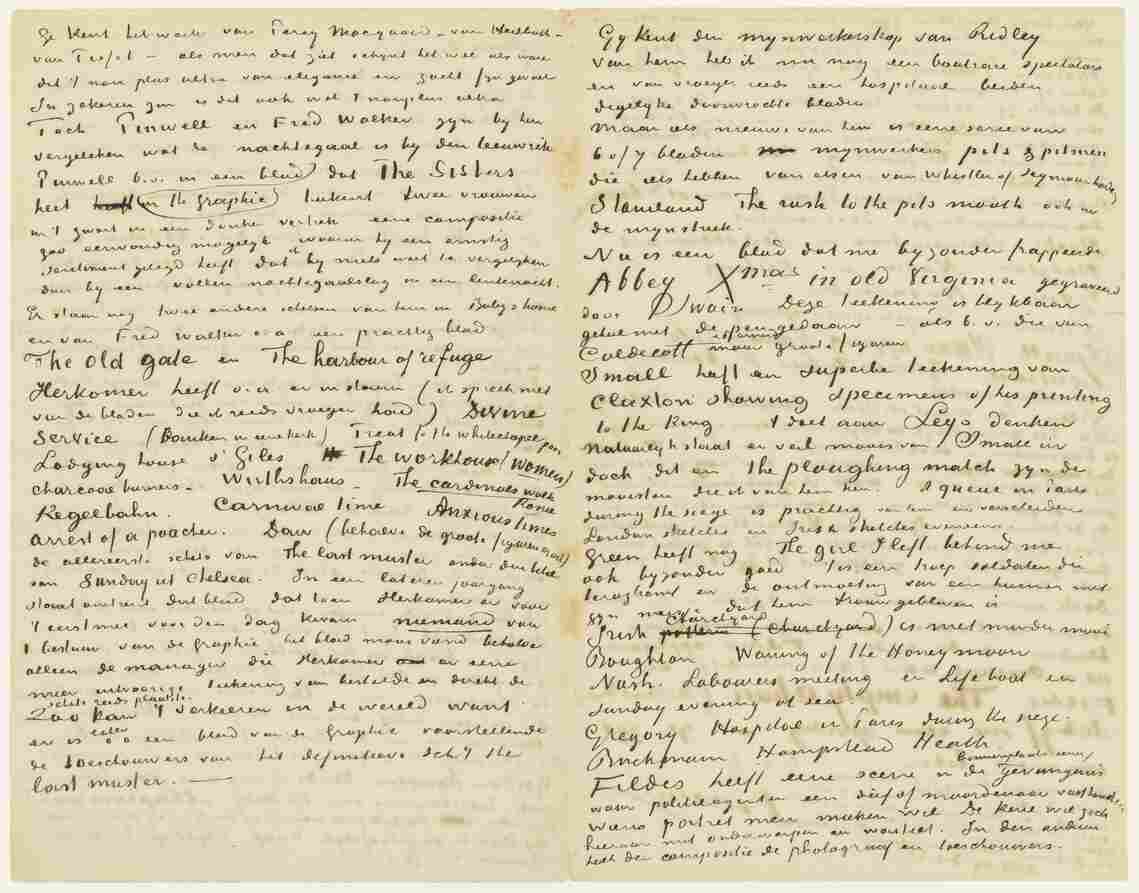 Ge kent het werk van Percy Macquoid – van Heilbuth –
van Tissot – als men dat ziet schijnt het wel als ware
dit 't non plus ultra van elegance en zacht fijn gevoel
In zekeren zin is dit ook wel 't nonplus ultra
Toch Pinwell en Fred Walker zijn bij hen
vergeleken wat de nachtegaal is bij den leeuwrik
Pinwell b.v. in een blad dat The Sisters
heet (in the Graphic) teekent twee vrouwen
in 't zwart in een donker vertrek eene compositie
zoo eenvoudig mogelijk waarin hij een ernstig
sentiment gelegd heeft dat ik bij niets weet te vergelijken
dan bij een vollen nachtegaalslag in een lentenacht.
Er staan nog twee andere schetsen van hem in Baby's home
en van Fred Walker o.a. een prachtig blad
The old gate en The harbour of refuge
Herkomer heeft o.a. er in staan (ik spreek niet
van de bladen die ik reeds vroeger had) Divine
Service (Boeren in eene kerk) Treat to the whitechapel poor
Lodging house St Giles The workhouse (women)
charcoal burners – Wirthshaus – The cardinals walk
Rome
Kegelbahn. Carnival time Anxious times
arrest of a poacher. Daar (behalve de groote figuren er uit)
de allereerste schets van The last muster onder den titel
van Sunday at Chelsea. In een lateren jaargang
staat omtrent dit blad dat toen Herkomer er voor
't eerst mee voor den dag kwam niemand van
't bestuur van de Graphic het blad mooi vond behalve
alleen de manager die Herkomer er eene
meer uitvoerige teekening van bestelde en direkt de
schets reeds plaatste.
Zoo kan 't verkeeren in de wereld want
er is later een blad van de Graphic voorstellende
de toeschouwers van het definitieve schij the
last muster. —
Gij kent den mijnwerkerskop van Ridley
van hem heb ik nu nog een boatrace spectators
en van vroeger reeds een hospitaal beiden
degelijke doorwrochte bladen
maar als nieuws van hem is eene serie van
6 of 7 bladen mijnwerkers pits & pitmen
die iets hebben van etsen van Whistler of Seymour haden
Staniland The rush to the pits mouth ook in
de mijnstreek.
Nu is een blad dat me byzonder frappeerde
Abbey Xmas in old Virginia gegraveerd
door Swain Deze teekening is blykbaar
geheel met de pen gedaan – als b.v. die van
Caldecott maar groote figuren
Small heeft een superbe teekening van
Claxton showing specimens of his printing
to the King 't doet aan Leys denken
natuurlijk staat er veel moois van Small in
doch dit en the ploughing match zyn de
mooisten die ik van hem ken. A queue in Paris
during the siege is prachtig van hem en verscheiden
London sketches en Irish sketches eveneens.
Green heeft nog The girl I left behind me
ook byzonder goed 't is een troep soldaten die
terugkomt en de ontmoeting van een hunner met
zyn meisje dat hem trouw gebleven is
Churchyard
Irish (Churchyard) is niet minder mooi
Boughton Waning of the Honeymoon
Nash. Labourers meeting en Lifeboat en
Sunday evening at sea.
Gregory Hospital in Paris during the siege.
Buckman Hampstead Heath
binnenplaats eener
Fildes heeft eene scene in de gevangenis
waar politieagenten een dief of moordenaar vasthouden
wiens portret men maken wil De kerel wil zich
hieraan niet onderwerpen en worstelt. In den anderen
hoek der compositie de photograaf en toeschouwers.